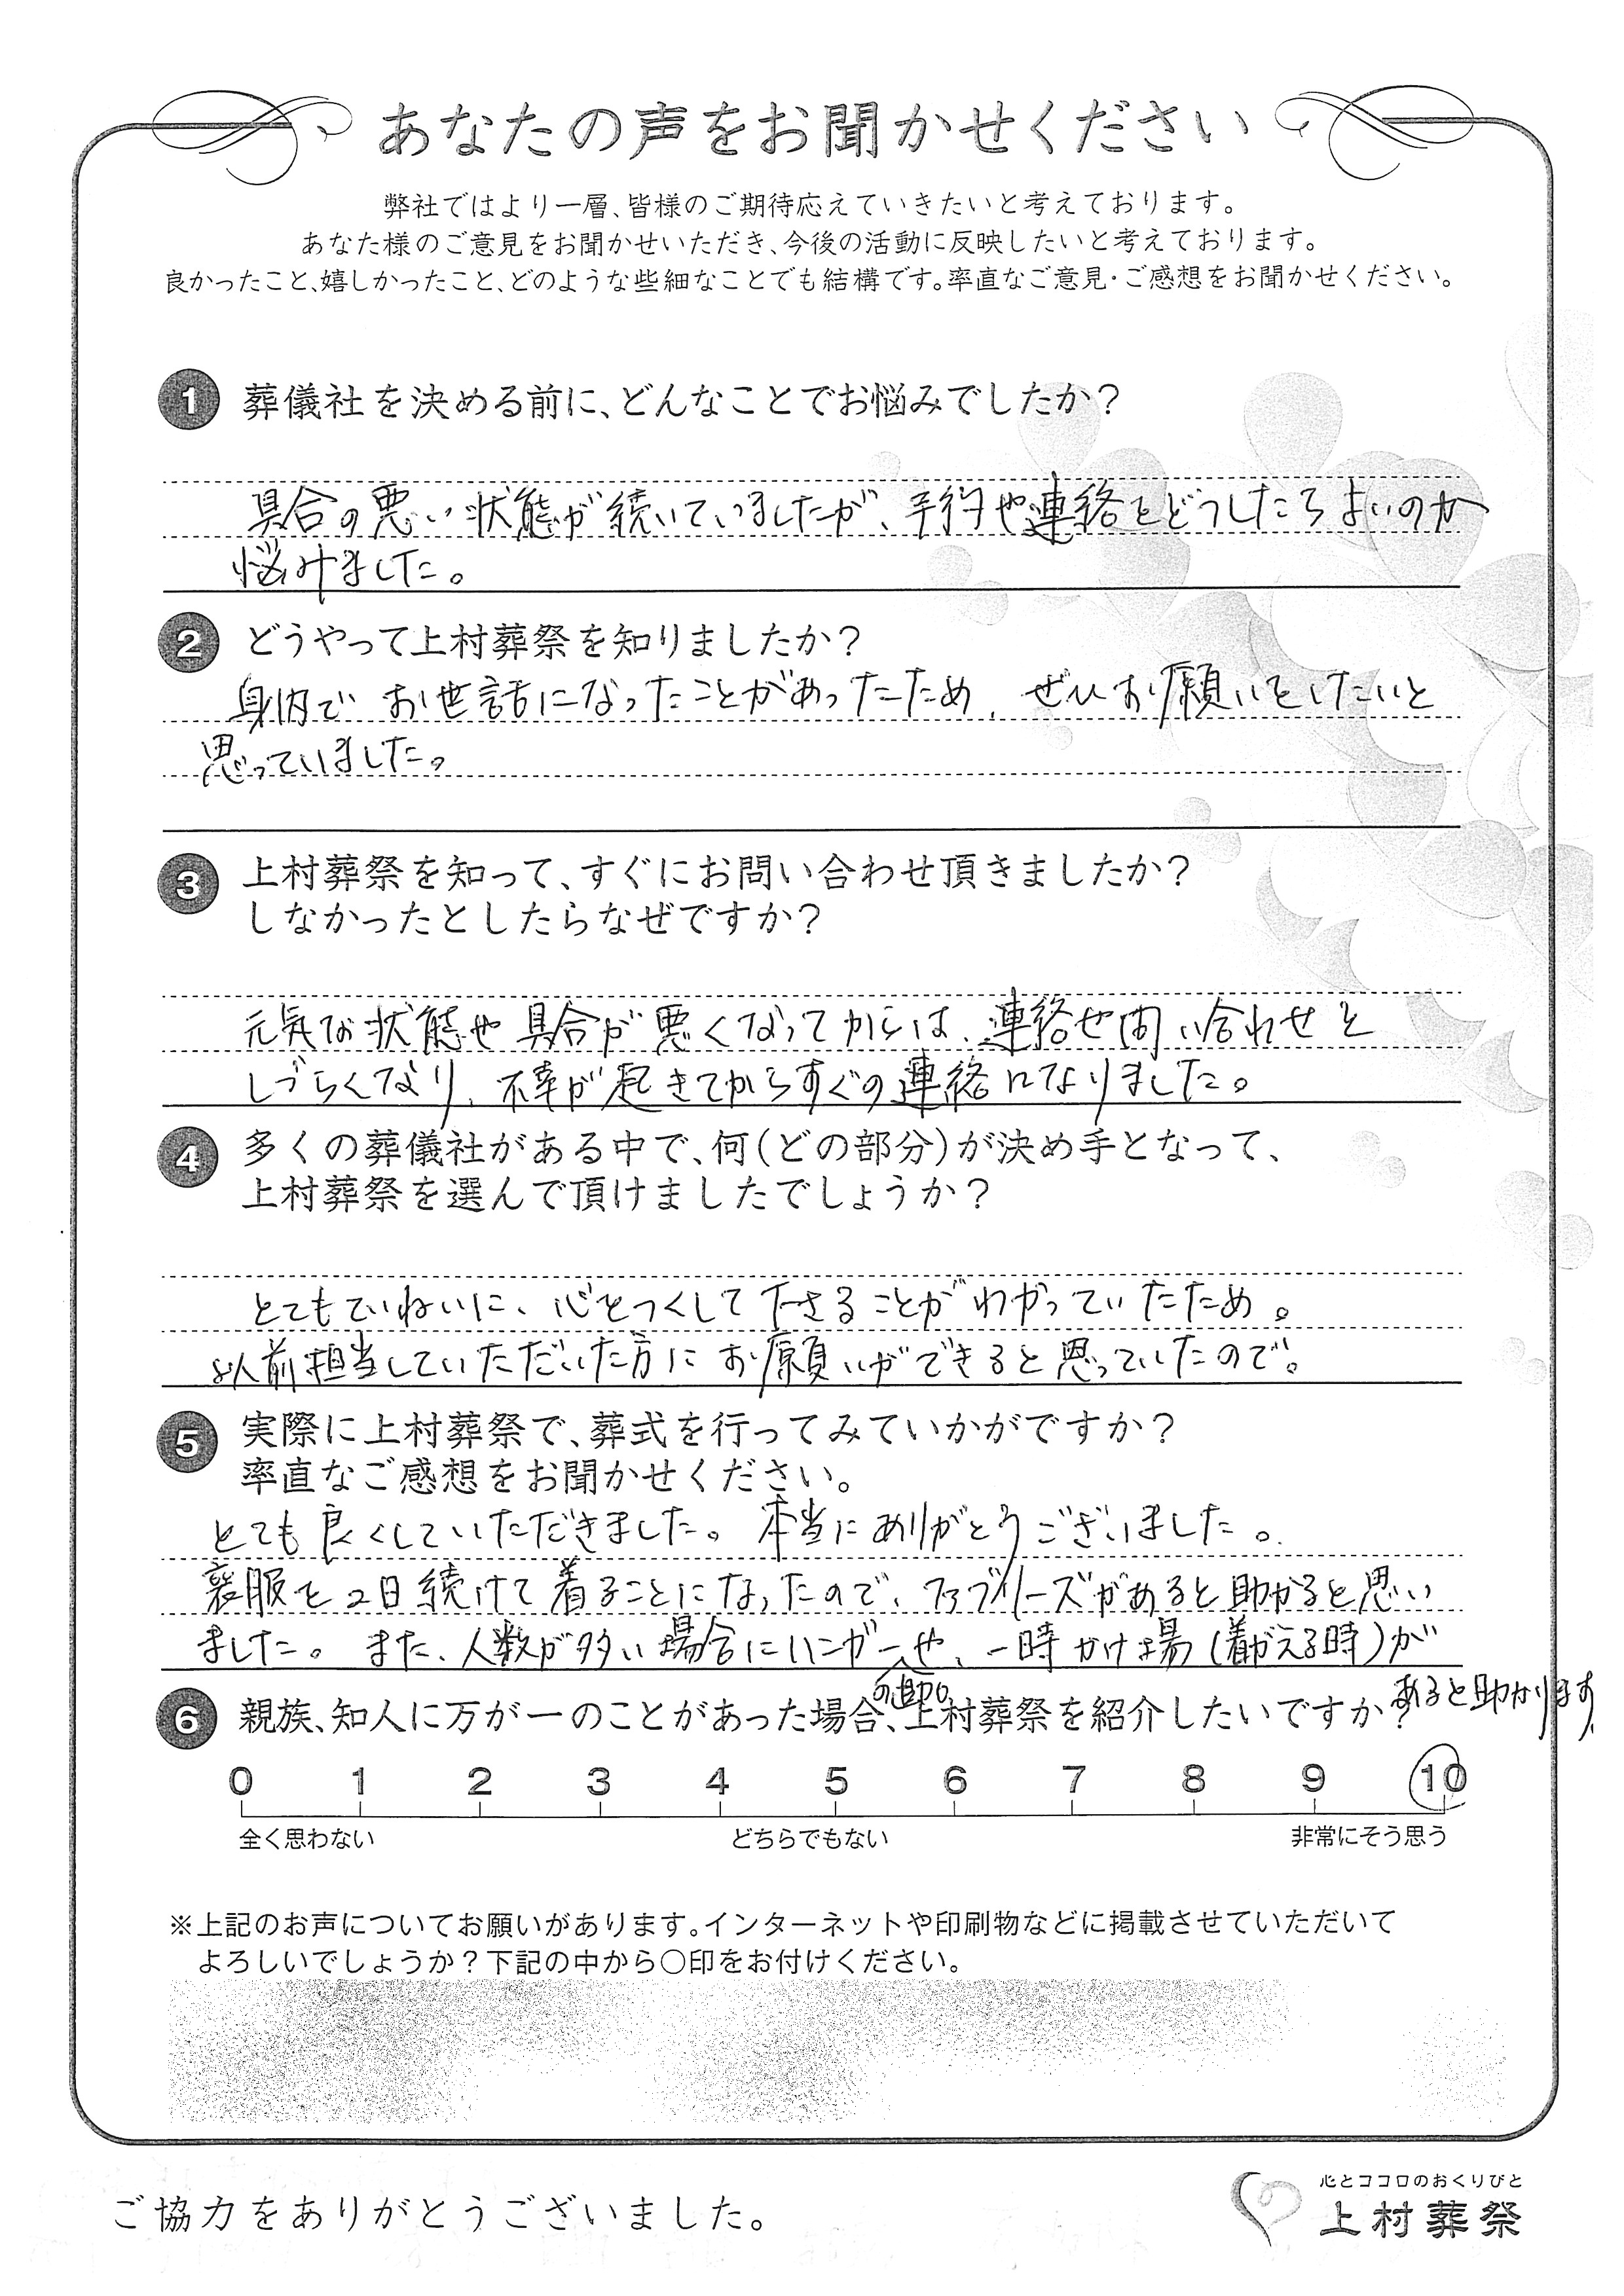 あなたの声をお聞かせください
弊社ではより一層、皆様のご期待応えていきたいと考えております。
あなた様のご意見をお聞かせいただき、今後の活動に反映したいと考えております。
良かったこと、嬉しかったこと、どのような些細なことでも結構です。率直なご意見・ご感想をお聞かせください。
1 葬儀社を決める前に、どんなことでお悩みでしたか?
具合の悪い状態が続いていましたが、予約や連絡をどうしたらよいのか
悩みました。
2 どうやって上村葬祭を知りましたか?
身内でお世話になったことがあったため、ぜひお願いをしたいと
思っていました。
3 上村葬祭を知って、すぐにお問い合わせ頂きましたか?
しなかったとしたらなぜですか?
元気な状態や具合が悪くなってからは、連絡や問い合わせを
しづらくなり、不幸が起きてからすぐの連絡になりました。
4 多くの葬儀社がある中で、何(どの部分)が決め手となって、
上村葬祭を選んで頂けましたでしょうか?
とてもていねいに、心をつくして下さることがわかっていたため。
以前担当していただいた方にお願いができると思っていたので。
5 実際に上村葬祭で、葬式を行ってみていかがですか?
率直なご感想をお聞かせください。
とても良くしていただきました。本当にありがとうございました。
喪服を2日続けて着ることになったので、ファブリーズがあると助かると思い
ました。また、人数が多い場合にハンガーの追加や、一時かけ場(着がえる時)が
あると助かります。
6 親族、知人に万が一のことがあった場合、上村葬祭を紹介したいですか?
0 1 2 3 4 5 6 7 8 9 10
全く思わない どちらでもない 非常にそう思う
※上記のお声についてお願いがあります。インターネットや印刷物などに掲載させていただいて
よろしいでしょうか?下記の中から○印をお付けください。
ご協力をありがとうございました。
心とココロのおくりびと
上村葬祭